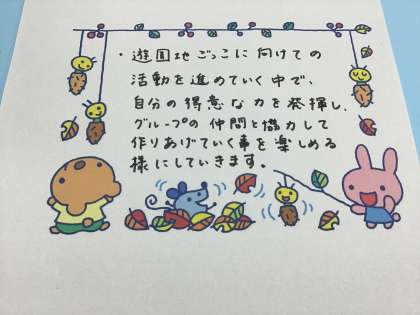 ・遊園地ごっこに向けての
活動を進めていく中で、
自分の得意な力を発揮し、
グループの仲間と協力して
作りあげていく事を楽しめる
様にしていきます。